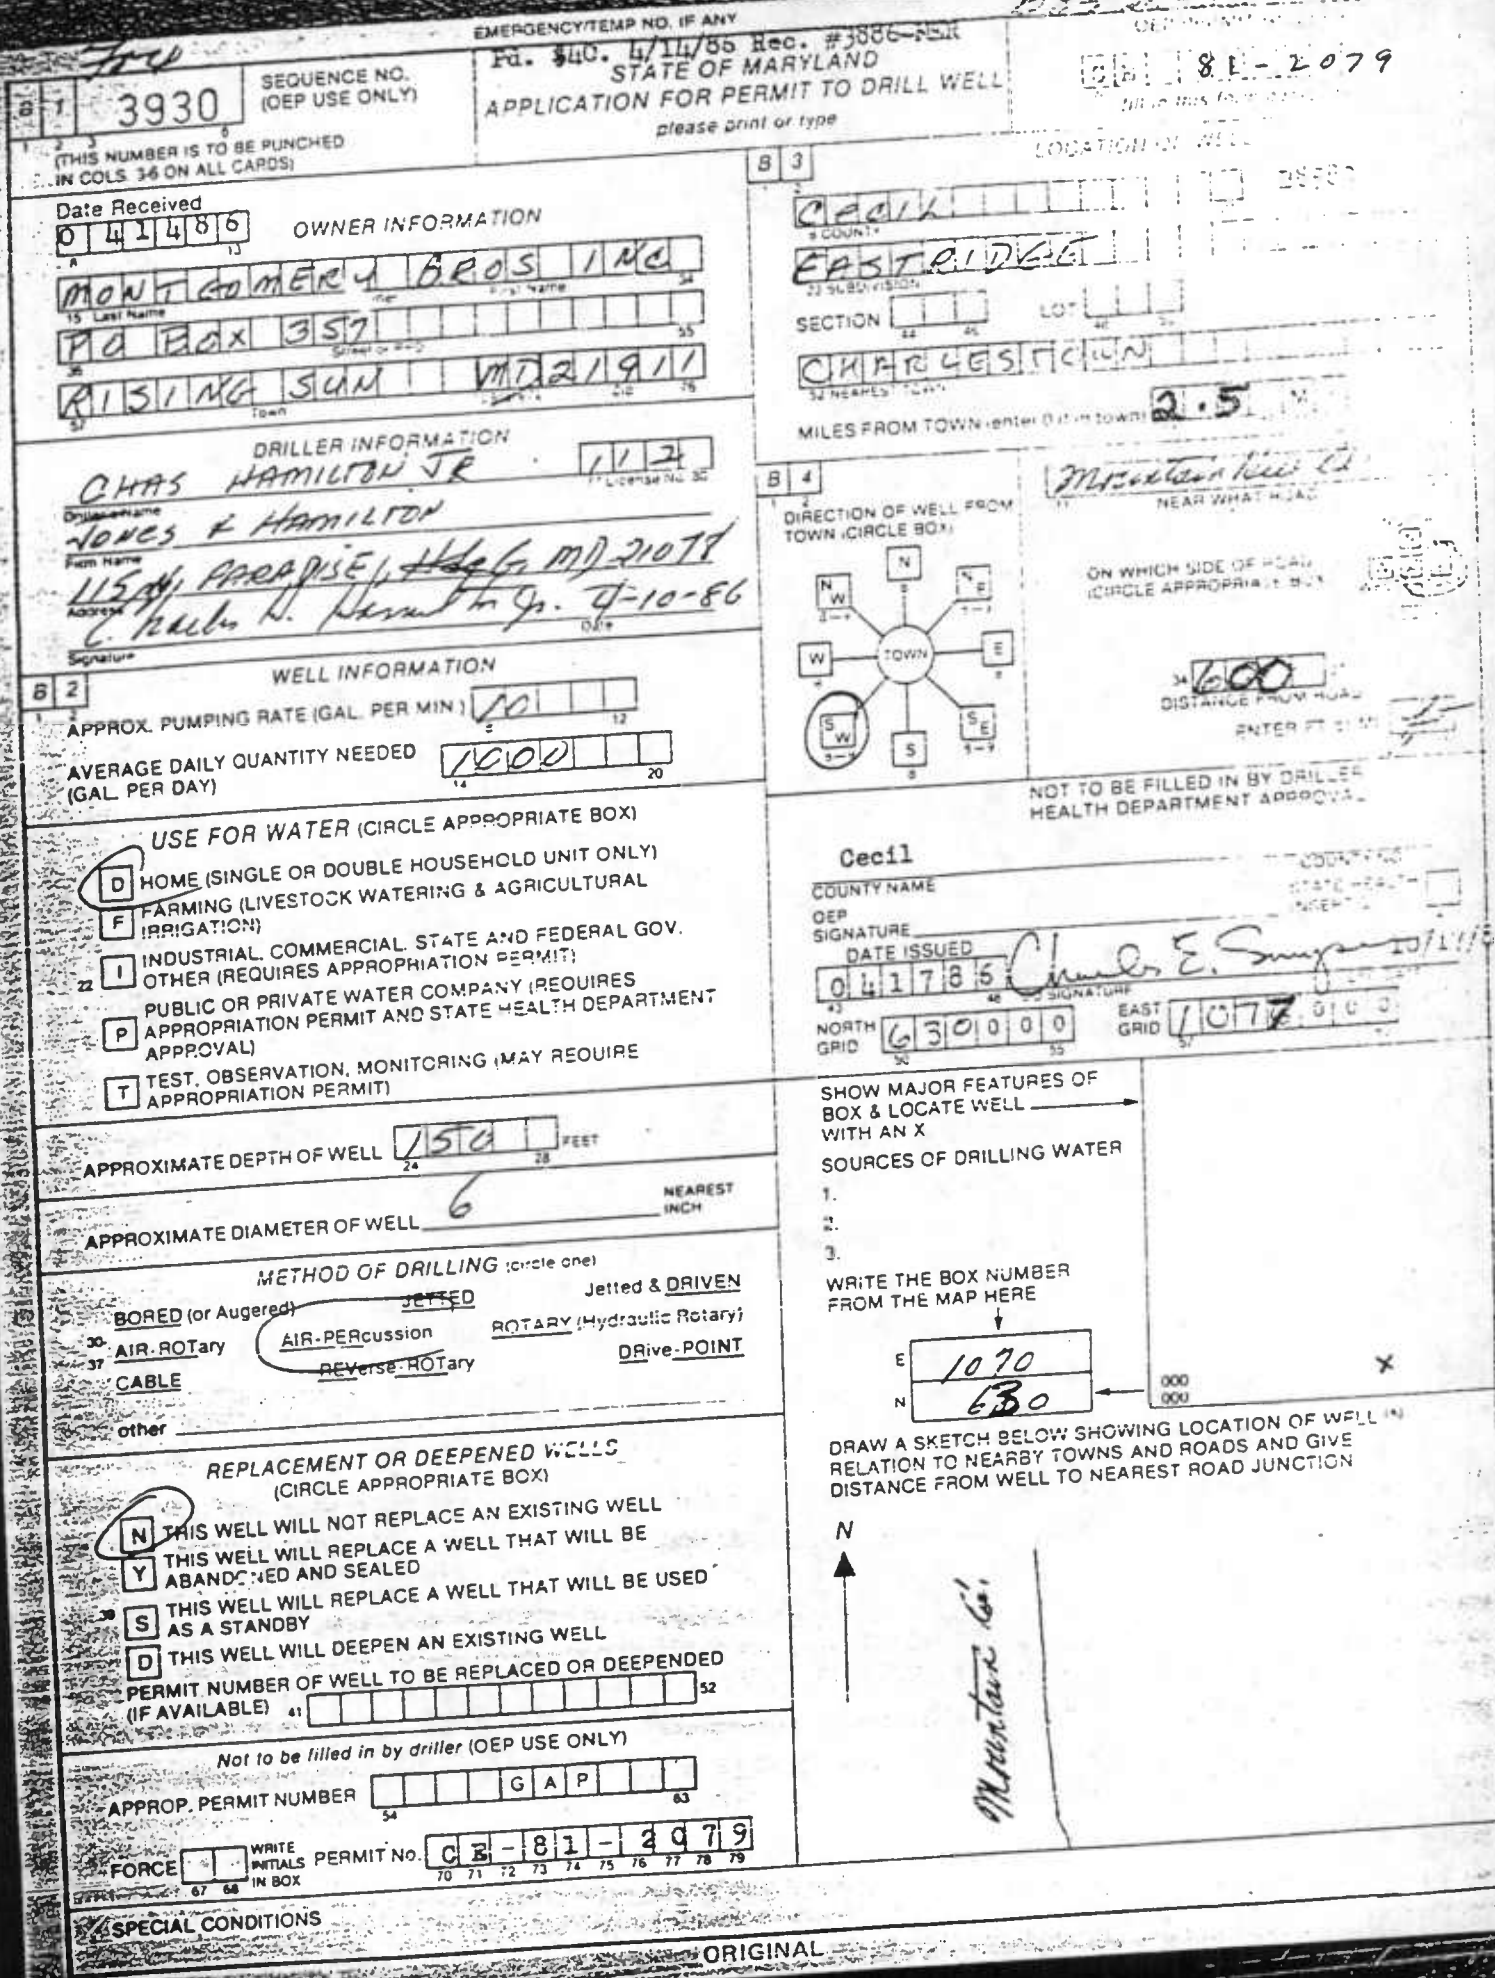 EMERGENCY/TEMP NO. IF ANY
Pd. $40. 4/14/86 Rec. #3886
B 1 3930
SEQUENCE NO.
(OEP USE ONLY)
STATE OF MARYLAND
APPLICATION FOR PERMIT TO DRILL WELL
please print or type
81-2079
fill in this form
(THIS NUMBER IS TO BE PUNCHED
IN COLS. 3-6 ON ALL CARDS)
Date Received
041486
OWNER INFORMATION
MONTGOMERY BROS INC
15 Last Name First Name 34
PO BOX 357
36 55
RISING SUN MD 21911
57 Town 76
DRILLER INFORMATION
CHAS HAMILTON JR 112
Driller's Name License No. 80
JONES & HAMILTON
Firm Name
115 N. PARADISE, HdeG, MD 21078
Address
4-10-86
Signature Date
B 2
WELL INFORMATION
APPROX. PUMPING RATE (GAL. PER MIN.) 10
12
AVERAGE DAILY QUANTITY NEEDED
(GAL. PER DAY) 1000
14 20
USE FOR WATER (CIRCLE APPROPRIATE BOX)
D HOME (SINGLE OR DOUBLE HOUSEHOLD UNIT ONLY)
F FARMING (LIVESTOCK WATERING & AGRICULTURAL
IRRIGATION)
22 I INDUSTRIAL, COMMERCIAL, STATE AND FEDERAL GOV.
OTHER (REQUIRES APPROPRIATION PERMIT)
P PUBLIC OR PRIVATE WATER COMPANY (REQUIRES
APPROPRIATION PERMIT AND STATE HEALTH DEPARTMENT
APPROVAL)
T TEST, OBSERVATION, MONITORING (MAY REQUIRE
APPROPRIATION PERMIT)
APPROXIMATE DEPTH OF WELL 150 FEET
24 28
APPROXIMATE DIAMETER OF WELL 6 NEAREST
INCH
METHOD OF DRILLING (circle one)
BORED (or Augered) JETTED Jetted & DRIVEN
30- AIR-ROTary AIR-PERcussion ROTARY (Hydraulic Rotary)
37 CABLE REVerse-ROTary DRive-POINT
other
REPLACEMENT OR DEEPENED WELLS
(CIRCLE APPROPRIATE BOX)
N THIS WELL WILL NOT REPLACE AN EXISTING WELL
Y THIS WELL WILL REPLACE A WELL THAT WILL BE
ABANDONED AND SEALED
39 S THIS WELL WILL REPLACE A WELL THAT WILL BE USED
AS A STANDBY
D THIS WELL WILL DEEPEN AN EXISTING WELL
PERMIT NUMBER OF WELL TO BE REPLACED OR DEEPENDED
(IF AVAILABLE) 41 52
Not to be filled in by driller (OEP USE ONLY)
APPROP. PERMIT NUMBER GAP
54 63
FORCE WRITE
INITIALS
IN BOX PERMIT No. CE-81-2079
67 68 70 71 72 73 74 75 76 77 78 79
SPECIAL CONDITIONS
ORIGINAL
B 3
LOCATION OF WELL
CECIL
8 COUNTY
EASTRIDGE
23 SUBDIVISION
SECTION LOT
44 46
CHARLESTOWN
52 NEAREST TOWN
MILES FROM TOWN (enter 0 if in town) 2.5
B 4
DIRECTION OF WELL FROM
TOWN (CIRCLE BOX)
N
NW NE
W TOWN E
SW SE
S
NEAR WHAT ROAD
ON WHICH SIDE OF ROAD
(CIRCLE APPROPRIATE BOX)
34 600
DISTANCE FROM ROAD
ENTER FT OR MI
NOT TO BE FILLED IN BY DRILLER
HEALTH DEPARTMENT APPROVAL
Cecil
COUNTY NAME
OEP
SIGNATURE
STATE HEALTH
DATE ISSUED
041786
43 48 SIGNATURE
NORTH
GRID 630000
50 55
EAST
GRID 1077000
57
SHOW MAJOR FEATURES OF
BOX & LOCATE WELL
WITH AN X
SOURCES OF DRILLING WATER
1.
2.
3.
WRITE THE BOX NUMBER
FROM THE MAP HERE
E 1070
N 630
000
000
X
DRAW A SKETCH BELOW SHOWING LOCATION OF WELL IN
RELATION TO NEARBY TOWNS AND ROADS AND GIVE
DISTANCE FROM WELL TO NEAREST ROAD JUNCTION
N
Mountain